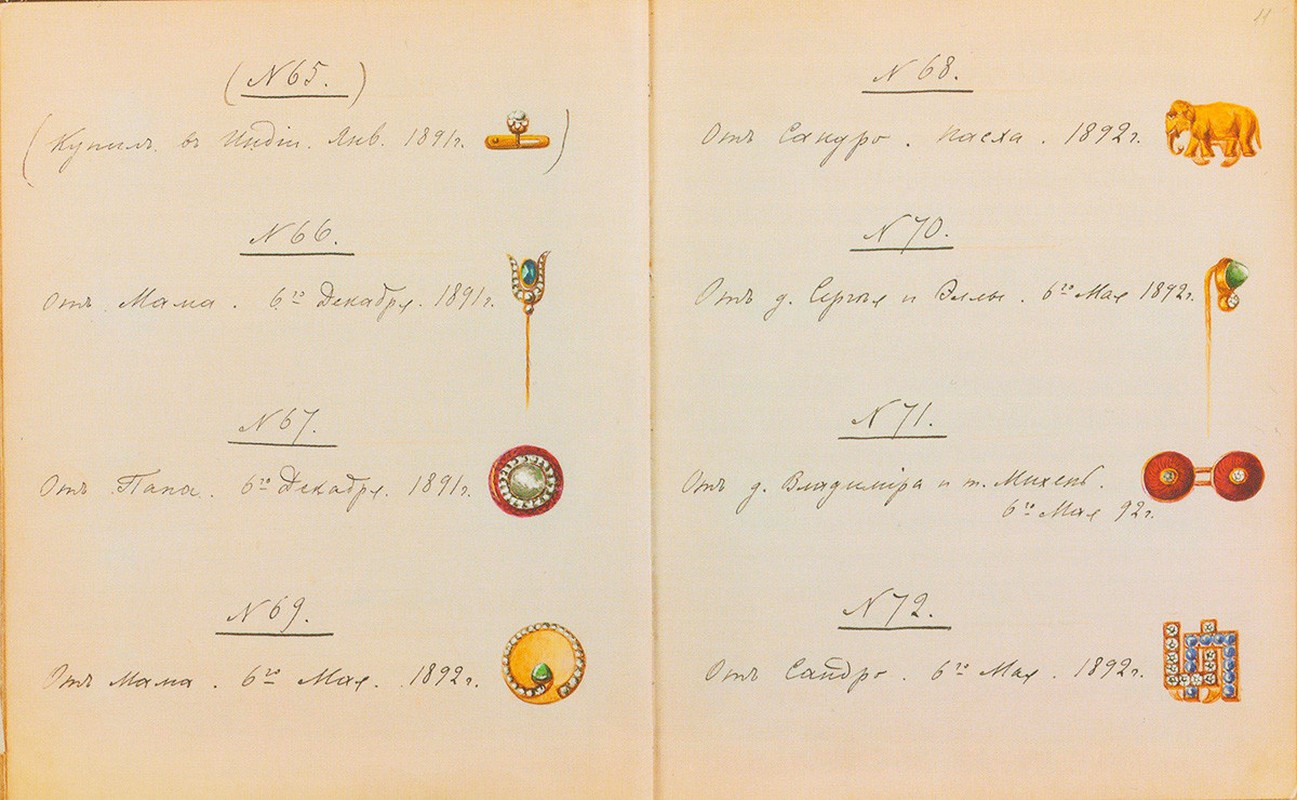 (N 65.)
(Купилъ въ Индіи. Янв. 1891г.)
N 66.
Отъ Мама. 6го Декабря. 1891г.
N 67.
Отъ Папа. 6го Декабря. 1891г.
N 69.
Отъ Мама. 6го Мая. 1892г.
11
N 68.
Отъ Сандро. Пасха. 1892г.
N 70.
Отъ д. Сергѣя и Эллы. 6го Мая 1892г.
N 71.
Отъ д. Владиміра и т. Михень.
6го Мая 92г.
N 72.
Отъ Сандро. 6го Мая. 1892г.